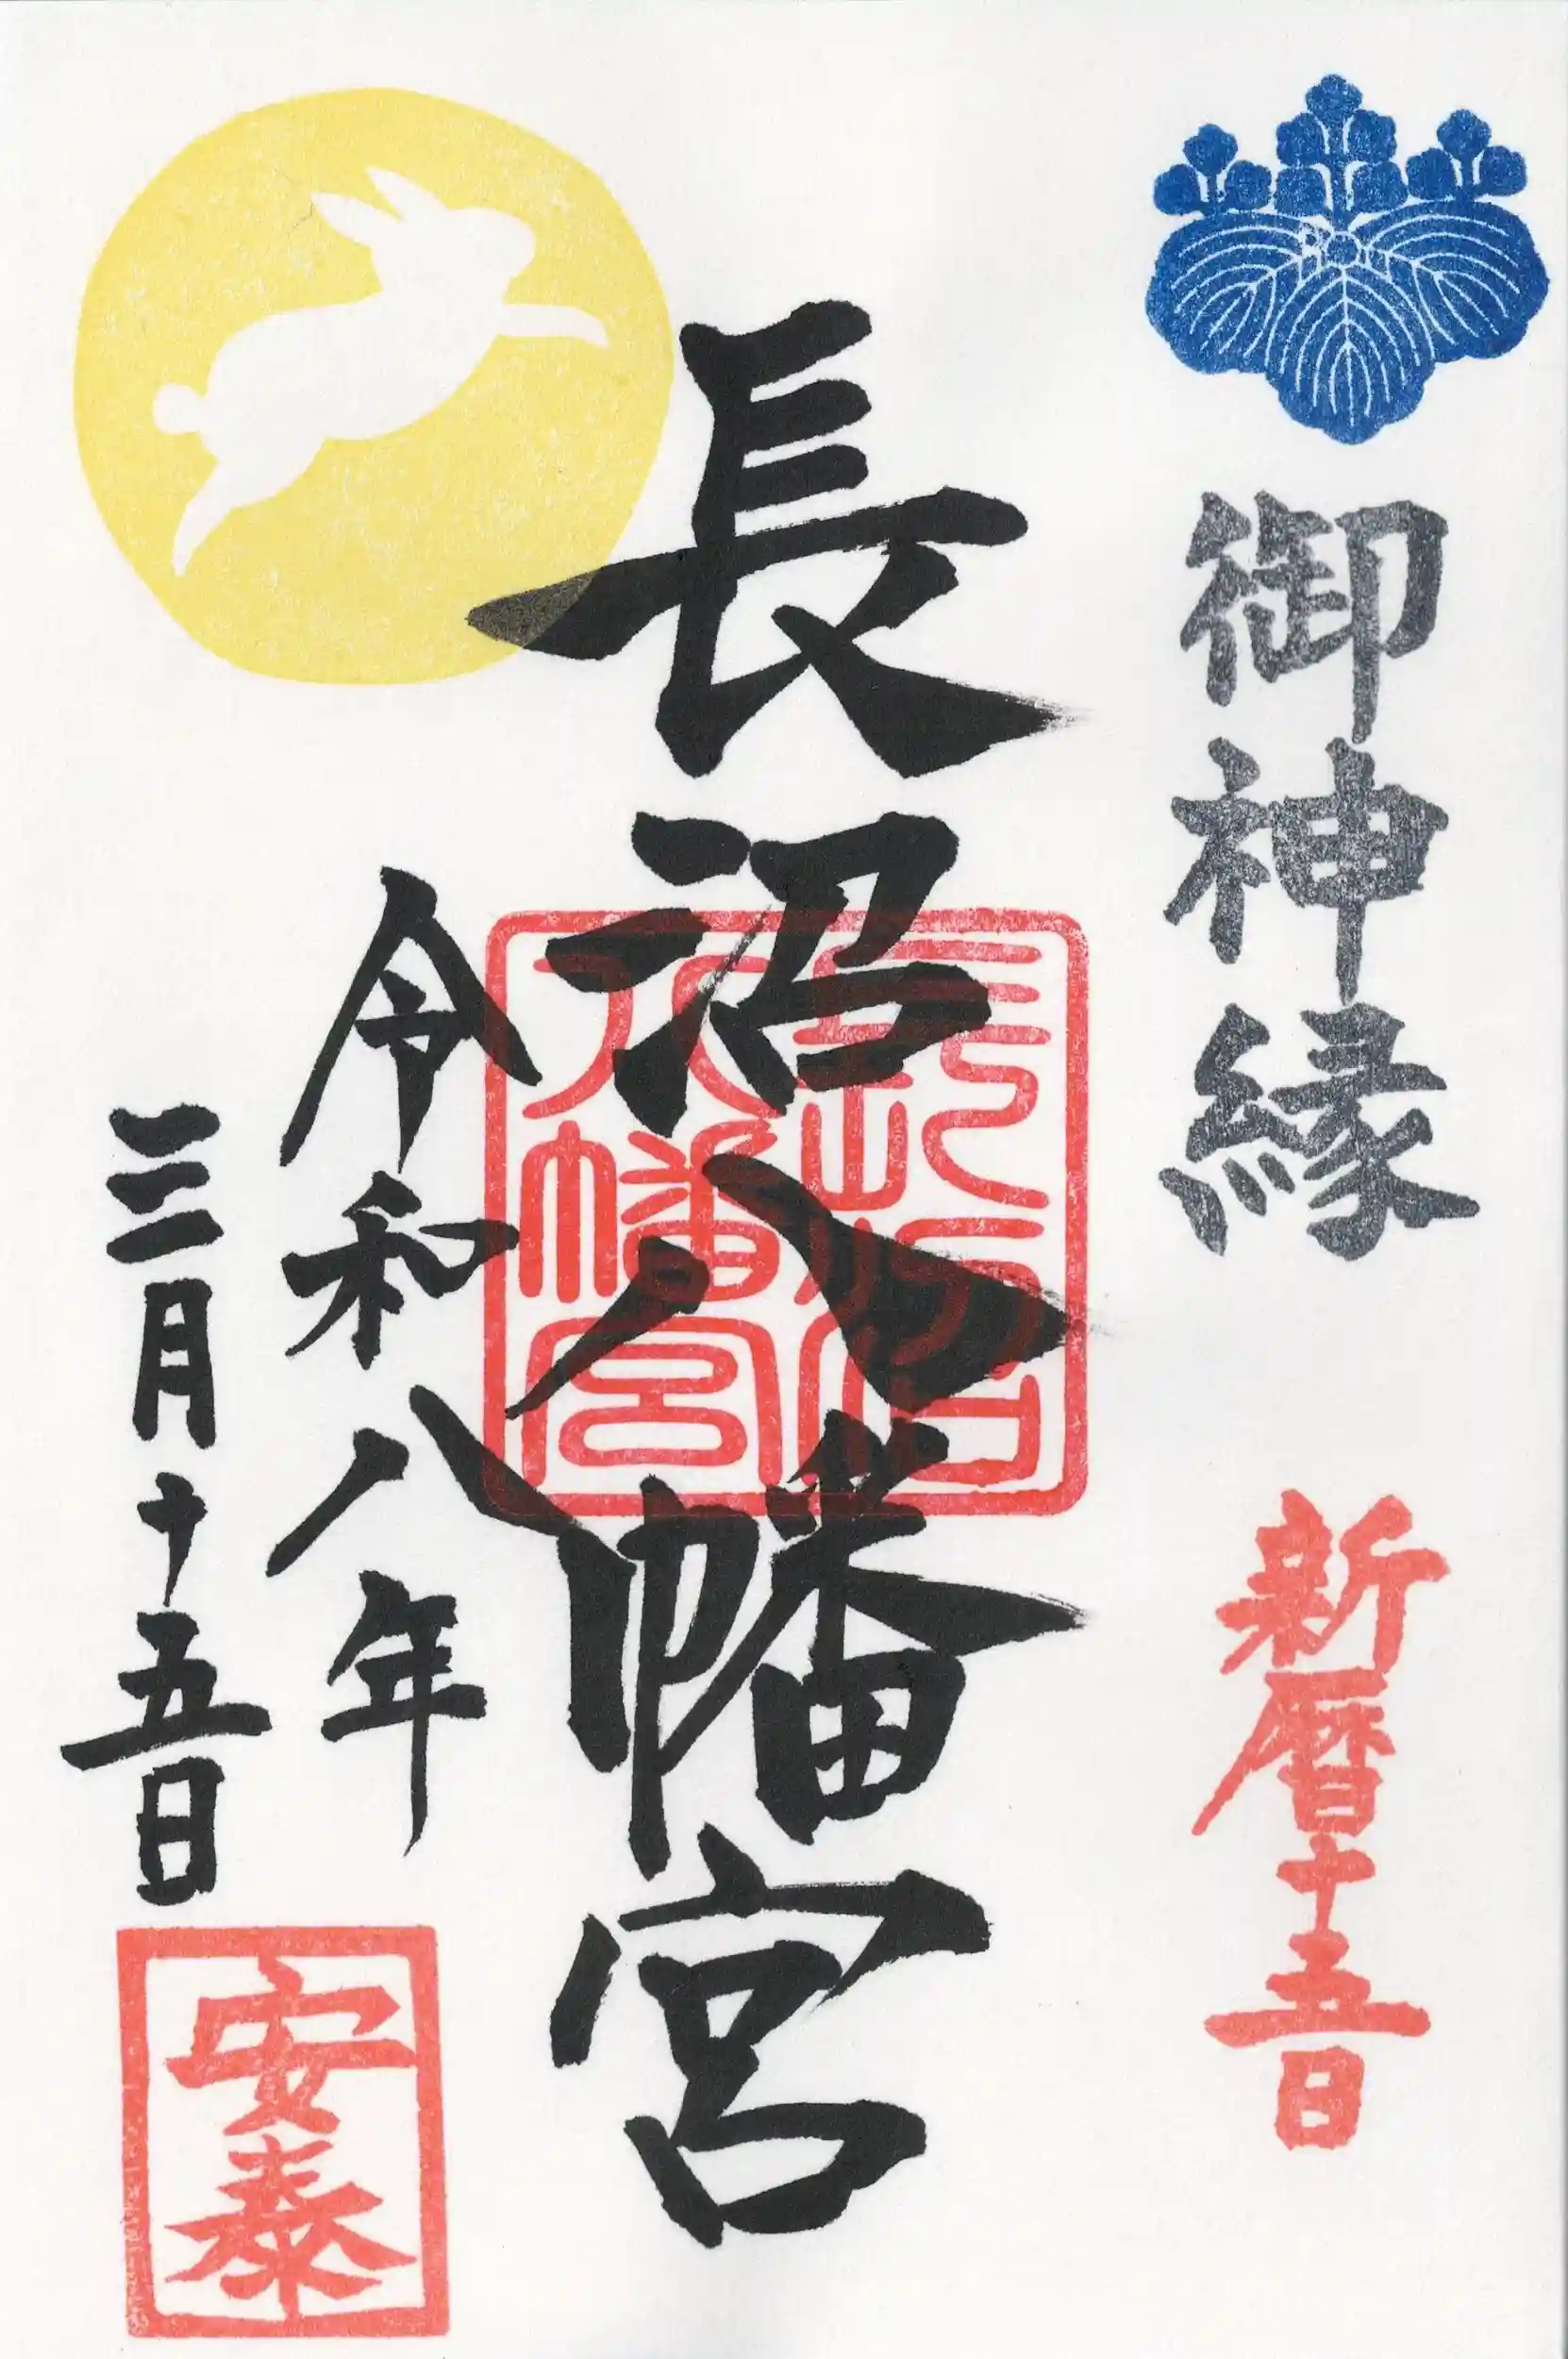 御神縁
新暦十五日
長沼八幡宮
長沼
八幡宮
令和八年
三月十五日
安泰